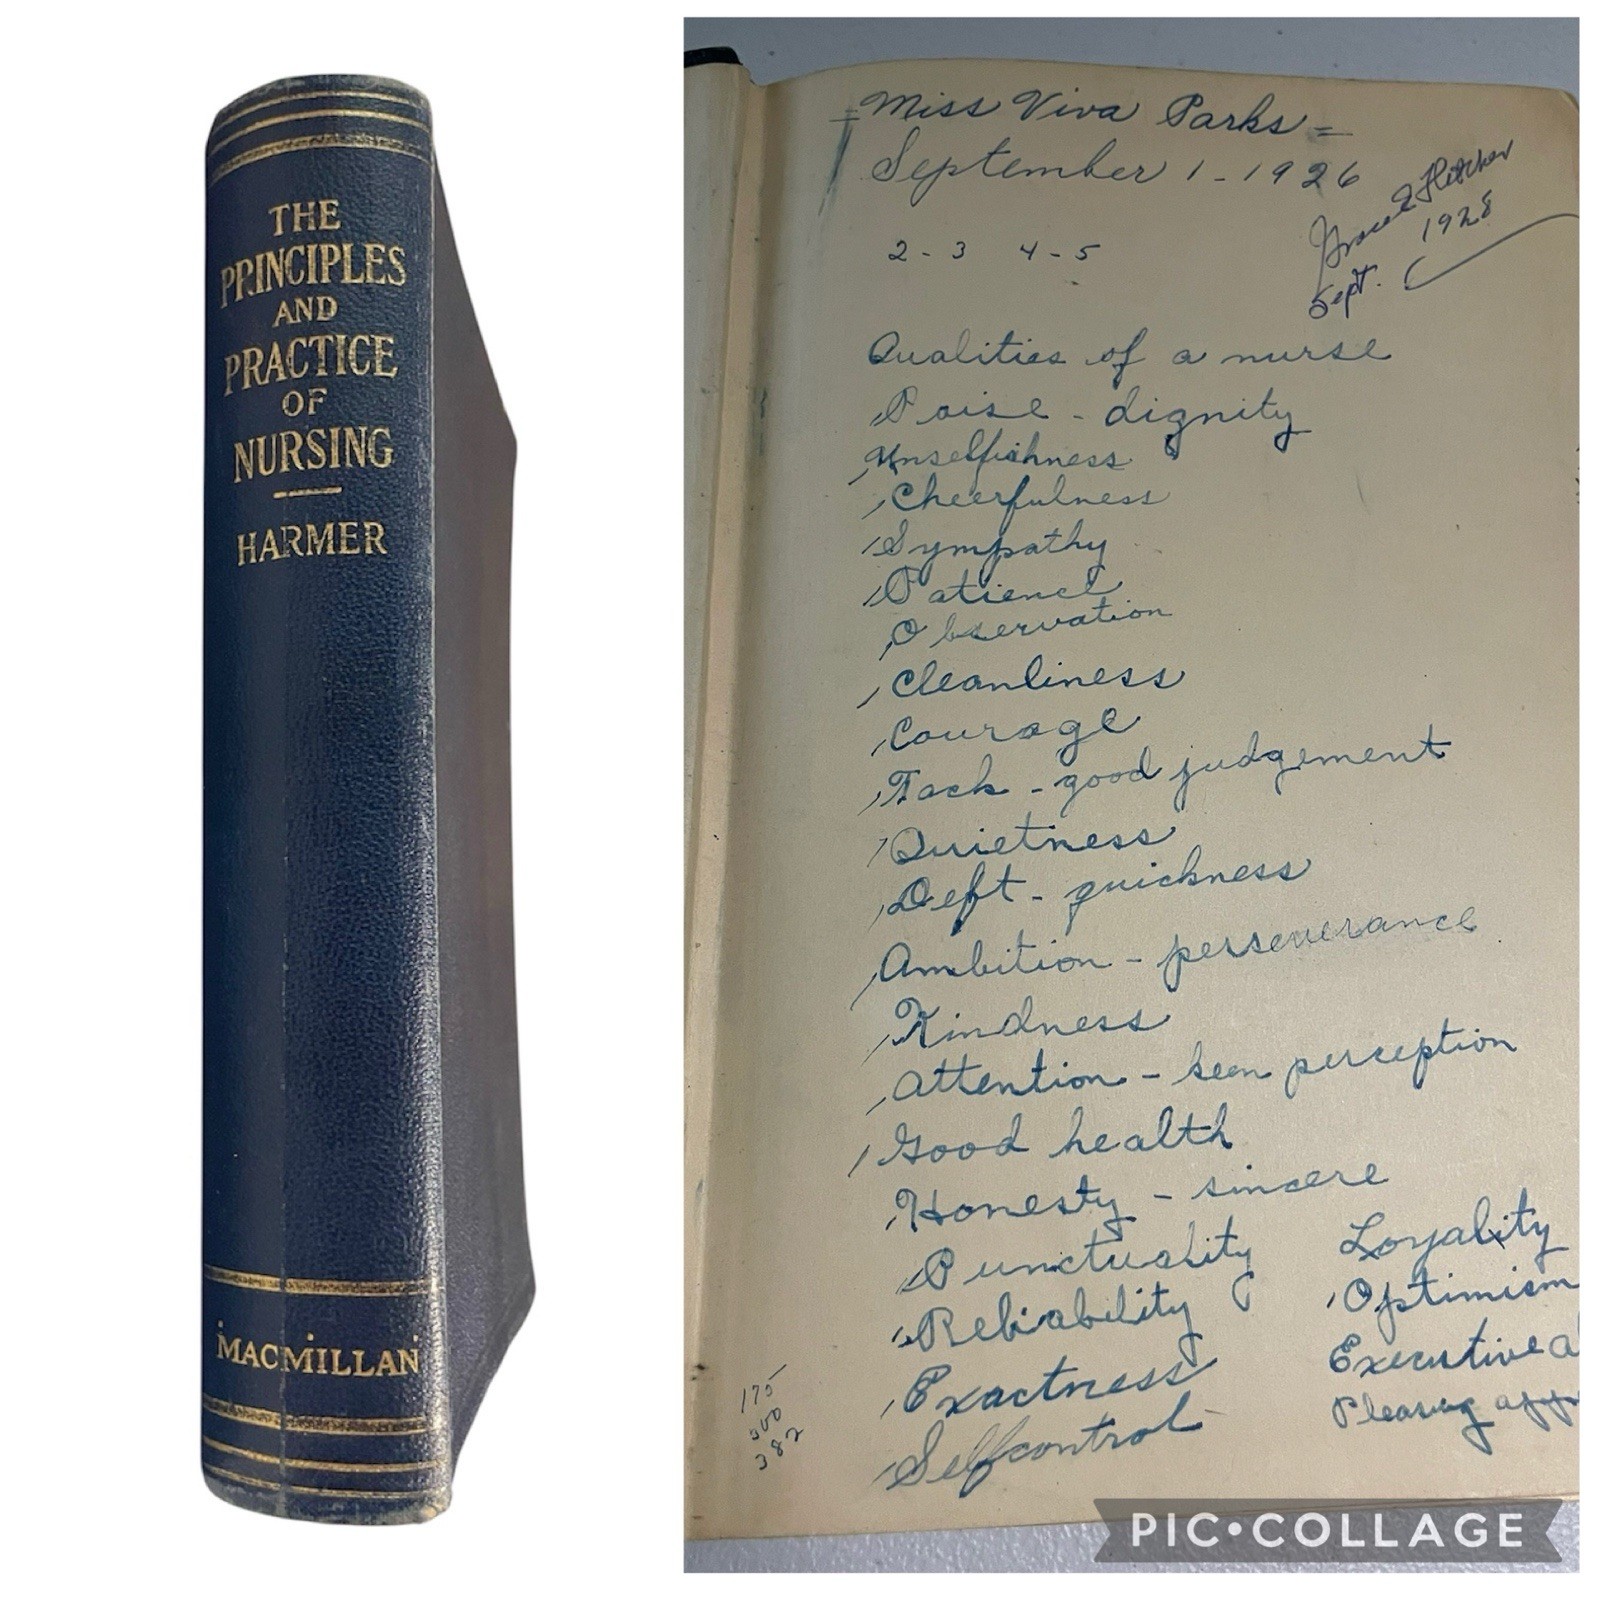 THE
PRINCIPLES
AND
PRACTICE
OF
NURSING
HARMER
MACMILLAN
=Miss Viva Parks=
September 1-1926
Grace Fletcher
Sept. 1928
2-3 4-5
Qualities of a nurse
Poise - dignity
Unselfishness
Cheerfulness
Sympathy
Patience
Observation
Cleanliness
Courage
Tack - good judgement
Quietness
Deft - quickness
Ambition - perseverance
Kindness
Attention - keen perception
Good health
Honesty - sincere
Punctuality
Reliability
Exactness
Selfcontrol
Loyality
Optimism
Executive a
Pleasing app
175
382
PIC•COLLAGE